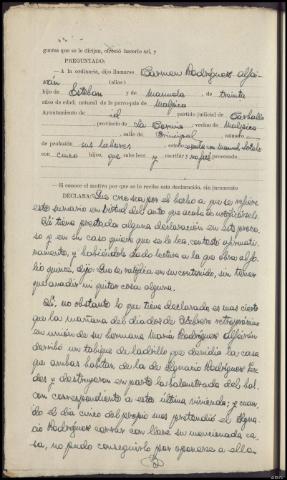 guntas que se le dirijan, ofreció hacerlo así, y
PREGUNTADO:
—A la ordinaria, dijo llamarse Carmen Rodríguez Alfei-
rán (alias)
hijo de Esteban y de Manuela de treinta
años de edad, natural de la parroquia de Malpica
Ayuntamiento de id partido judicial de Carballo
provincia de La Coruña, vecino de Malpica
calle de Principal número
de profesión sus labores, estado casada con Manuel
con cinco hijos, que sabe leer y escribir y no fué procesado
—Si conoce el motivo por que se le recibe esta declaración, sin juramento
DECLARA: Que cree sea por el hecho a que se refiere
este sumario en virtud del auto que acaba de notificársele
Si tiene prestada alguna declaración en este proce-
so y en su caso quiere que se le lea, contestó afirmati-
vamente, y habiéndole dado lectura a la que obra al fo-
lio quince, dijo: Que se ratifica en su contenido, sin tener
que añadir ni quitar cosa alguna.
Si, no obstante lo que tiene declarado es mas cierto
que la mañana del dia dos de Octubre retropróximo
en unión de su hermana María Rodríguez Alfeirán
derribó un tabique de ladrillo que dividía la casa
que ambas habitan de la de Ignacio Rodríguez
y destruyeron en parte la balaustrada del bal-
con correspondiente a esta última vivienda; y cuan-
do el dia cinco del propio mes pretendió el Igna-
cio Rodríguez cerrar con llave su mencionada ca-
sa, no pudo conseguirlo por oponerse a ella